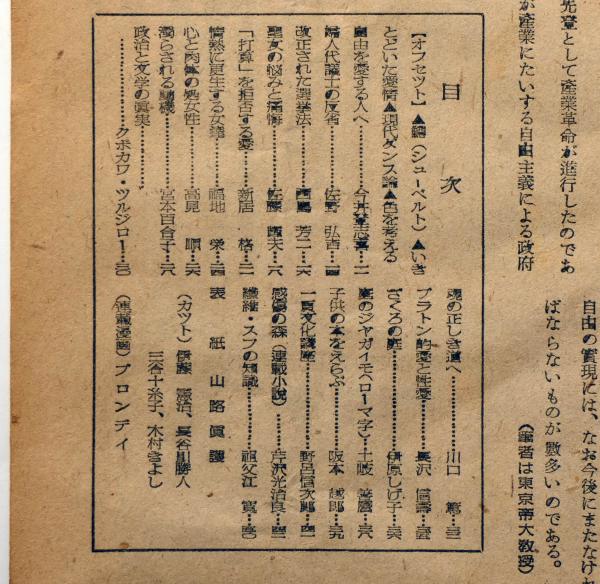 先登として産業革命が進行したのであ
が産業にたいする自由主義による政府
自由の實現には、なお今後にまたなけれ
ばならないものが數多いのである。
(筆者は東京帝大教授)
目次
【オフセツト】▲鱒(シューベルト)▲いき
とどいた强情▲現代ダンス論▲色を考える
自由を愛する人へ……今井登志喜…二
婦人代議士の反省……佐野 弘吉…一四
改正された選擧法……西島 芳二…一六
聖女の悩みと痛悔……佐藤 朔夫…一八
「打算」を拒否する愛……新居 格…二一
情熱に更生する女達……福地 榮…二四
心と肉體の処女性……高見 順…二六
濁らされる動機……宮本百合子…二八
政治と文学の眞実……
……クボカワ・ツルジロー…三〇
魂の正しき道へ……山口 篤…三三
プラトン的愛と性愛……長沢 信壽…三五
ざくろの庭……伊原しげ子…三六
庭のジャガイモ(ローマ字)…土岐 善麿…三八
子供の本をえらぶ……阪本 越郎…三九
一頁文化講座……野呂信次郎…四一
感傷の森(連載小説)……芹沢光治良…四二
纖維・スフの知識……祖父江 寛…四〇
表紙 山路眞護
(カツト)伊藤 憲治、長谷川勝人
三谷十糸子、木村きよし
(連載漫画)ブロンディ